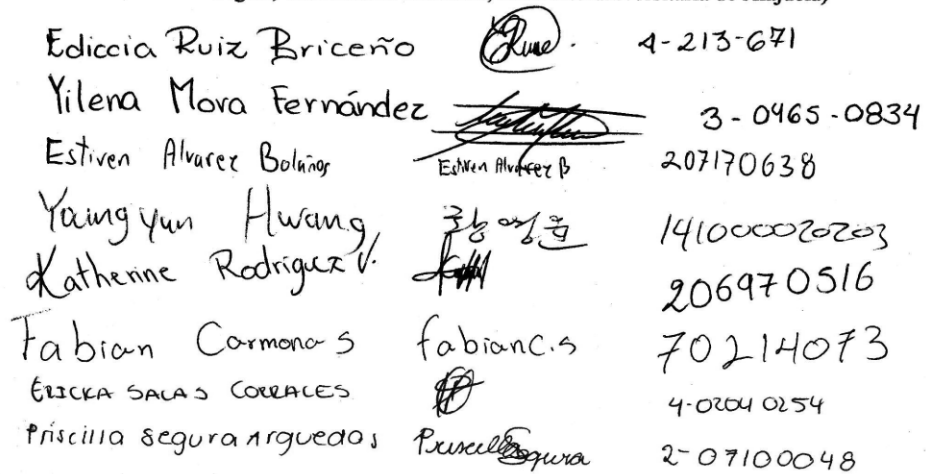 Ediccia Ruiz Briceño 4-213-671
Yilena Mora Fernández 3-0465-0834
Estiven Alvarez Bolaños Estiven Alvarez B 207170638
Youngyun Hwang 황영윤 141000020203
Katherine Rodríguez V. 206970516
Fabian Carmona S fabianc.s 70214073
ERICKA SALAS CORRALES 4-02040254
Priscilla Segura Arguedas Priscilla Segura 2-07100048